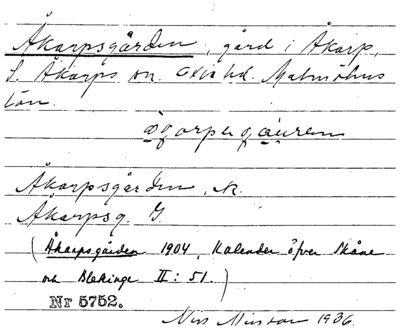 Åkarpsgården, gård i Åkarp,
S. Åkarps sn. Oxie hd. Malmöhus
län.
Åkarpsgården, N.
Åkarpsg. G.
(Åkarpsgården 1904, Kalender öfver Skåne
och Blekinge II: 51.)
Nr 5752.
Nils 1936.